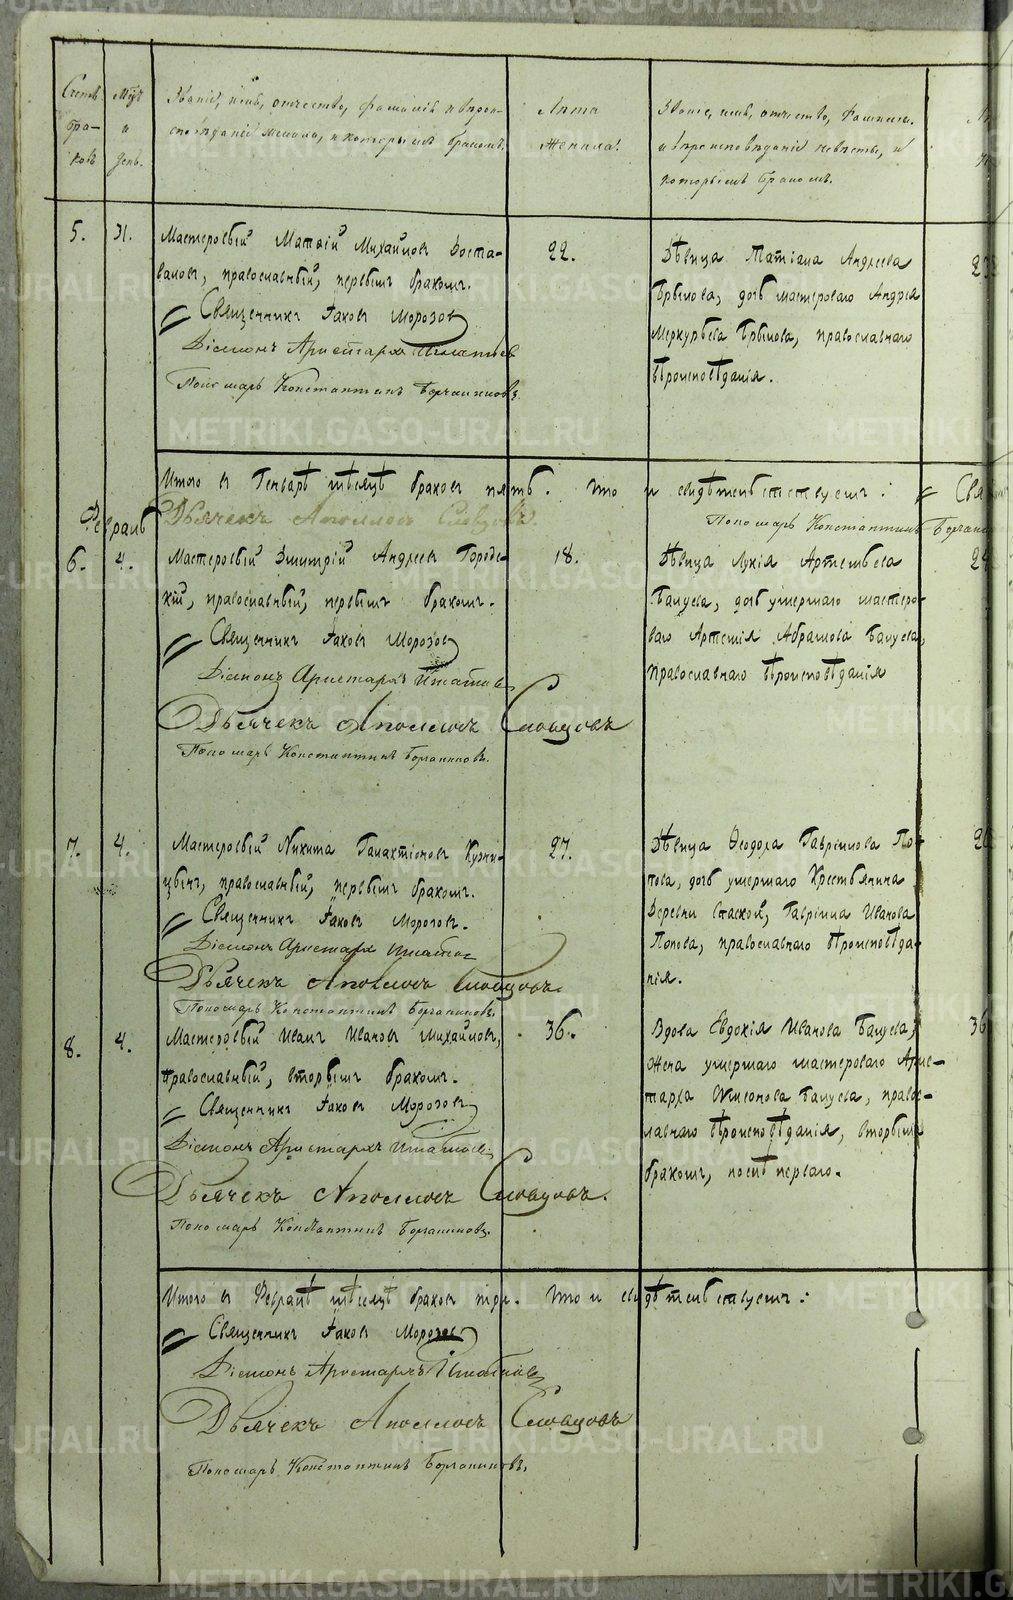 METRIKI.GASO-URAL.RU
Счетъ браковъ
Мѣц и день.
Званіе, имя, отчество, фамилія и вѣроисповѣданіе жениха, и которымъ бракомъ.
Лѣта жениха.
Званіе, имя, отчество, фамилія и вѣроисповѣданіе невѣсты, и которымъ бракомъ.
5. 31.
Мастеровый Матвій Михайловъ
православный, первымъ бракомъ.
Священникъ Іаковъ Морозовъ
Діаконъ Аристархъ Игнатьевъ
Пономарь Константинъ
22.
Дѣвица Татіана Андреева
дочь мастероваго Андрея
Меркурьева православнаго
вѣроисповѣданія.
23
Итого в Генварѣ мѣсяцѣ браковъ пять. Что и свидѣтельствуемъ: Свя
Дьячекъ Аполлосъ Словцовъ
Пономарь Константинъ
Февраль
6. 4.
Мастеровый Дмитрій Андреевъ Городскій, православный, первымъ бракомъ.
Священникъ Іаковъ Морозовъ
Діаконъ Аристархъ Игнатьевъ
Дьячекъ Аполлосъ Словцовъ
Пономарь Константинъ
18.
Дѣвица Лукія Артемьева
Бануева, дочь умершаго мастероваго Артемія Абрамова Бануева,
православнаго вѣроисповѣданія
7. 4.
Мастеровый Никита Галактіоновъ
православный, первымъ бракомъ.
Священникъ Іаковъ Морозовъ.
Діаконъ Аристархъ Игнатьевъ
Дьячекъ Аполлосъ Словцовъ.
Пономарь Константинъ
27.
Дѣвица Ѳеодора Гавріилова Попова, дочь умершаго Крестьянина
Деревни Спаской, Гавріила Иванова
Попова, православнаго вѣроисповѣданія.
8. 4.
Мастеровый Иванъ Ивановъ Михайловъ,
православный, вторымъ бракомъ.
Священникъ Іаковъ Морозовъ
Діаконъ Аристархъ Игнатьевъ
Дьячекъ Аполлосъ Словцовъ.
Пономарь Константинъ
36.
Вдова Евдокія Иванова Бануева,
жена умершаго мастероваго Аристарха Бануева, православнаго вѣроисповѣданія, вторымъ
бракомъ, послѣ перваго.
36
Итого в Февралѣ мѣсяцѣ браковъ три. Что и свидѣтельствуемъ:
Священникъ Іаковъ Морозовъ
Діаконъ Аристархъ Игнатьевъ
Дьячекъ Аполлосъ Словцовъ
Пономарь Константинъ